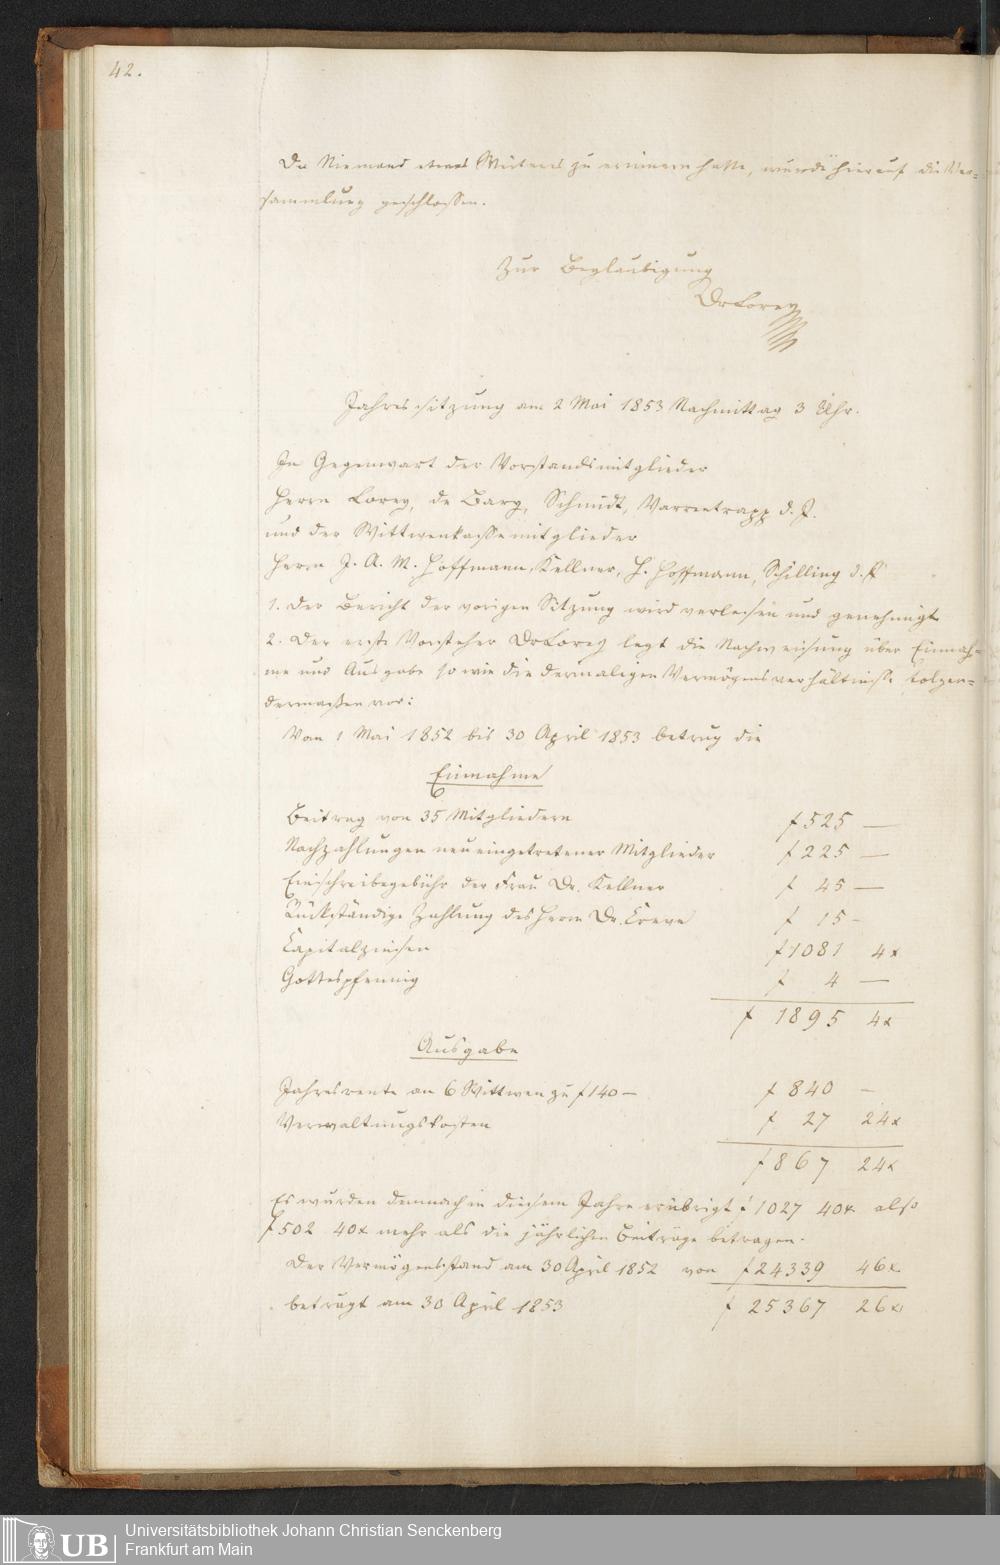 42.
Da Niemand etwas Weiteres zu erinnern hatte, wurde hierauf die Ver=
sammlung geschlossen.
Zur Beglaubigung
Dr Lorey
Jahressitzung am 2 Mai 1853 Nachmittag 3 Uhr.
In Gegenwart der Vorstandsmitglieder
Herrn Lorey, de Bary, Schmidt, Varrentrapp d. J.
und der Wittwenkassemitglieder
Herrn J. A. M. Hoffmann, Kellner, H. Hoffmann, Schilling
1. Der Bericht der vorigen Sitzung wird verlesen und genehmigt
2. Der erste Vorsteher Dr Lorey legt die Nachweisung über Einnah=
me und Ausgabe so wie die dermaligen Vermögensverhältnisse folgen=
dermassen vor:
Vom 1 Mai 1852 bis 30 April 1853 betrug die
Einnahme
Beitrag von 35 Mitgliedern f 525 —
Nachzahlungen neueingetretener Mitglieder f 225 —
Einschreibegebühr der Frau Dr. Kellner f 45 —
Rückständige Zahlung des Herrn Dr. f 15 -
Capitalzinsen f 1081 4x
Gottespfennig f 4 —
f 1895 4x
Ausgabe
Jahresrente an 6 Wittwen zu f 140 — f 840 -
Verwaltungskosten f 27 24x
f 867 24x
Es wurden demnach in diesem Jahre erübrigt f 1027 40x also
f 502 40x mehr als die jährlichen Beiträge betragen.
Der Vermögensstand am 30 April 1852 von f 24339 46x
beträgt am 30 April 1853 f 25367 26x
UB
Universitätsbibliothek Johann Christian Senckenberg
Frankfurt am Main